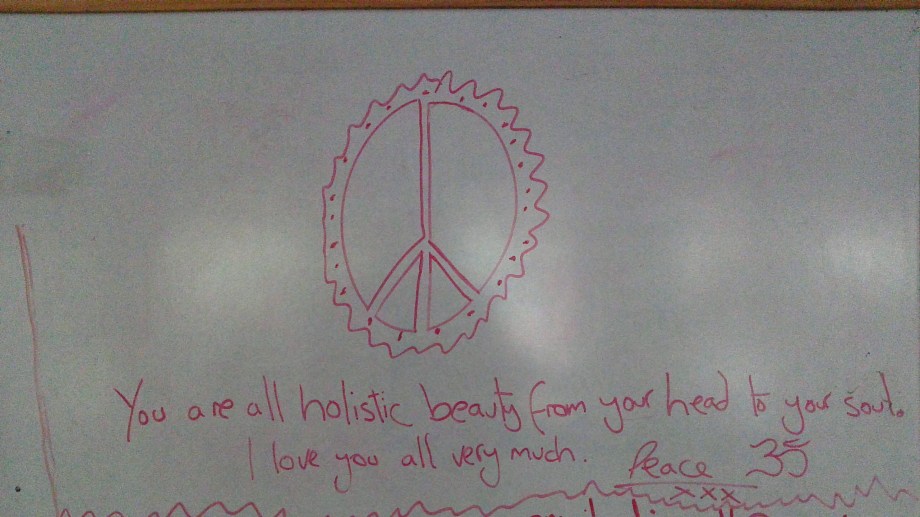 You are all holistic beauty from your head to your soul.
I love you all very much. Peace
xxx